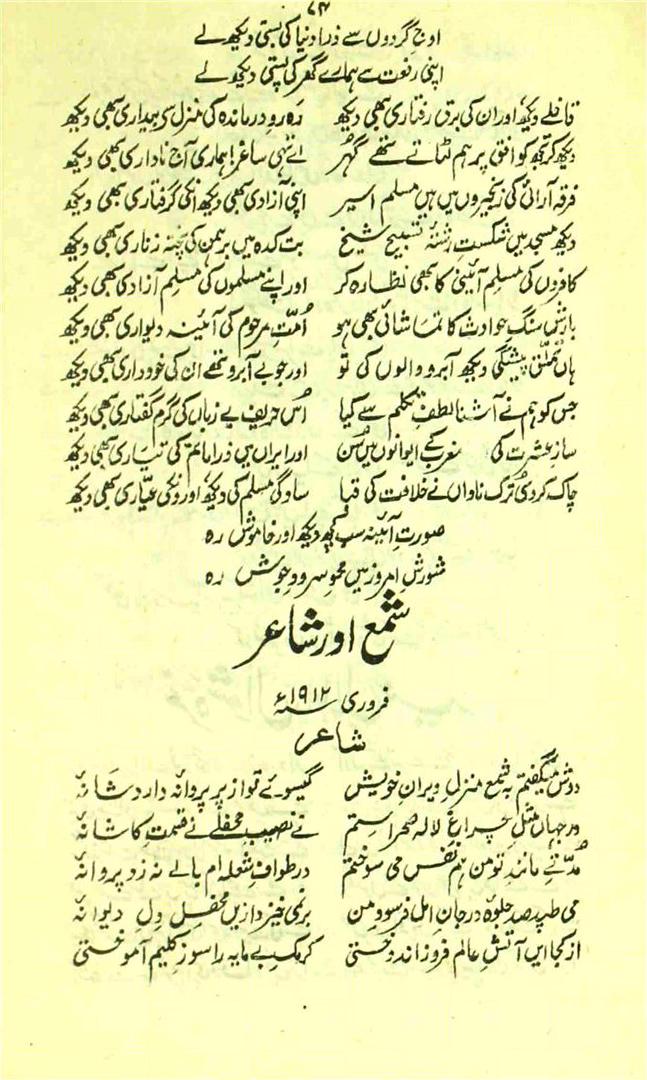 ۷۴
اوجِ گردوں سے ذرا دنیا کی بستی دیکھ لے
اپنی رفعت سے ہمارے گھر کی پستی دیکھ لے
قافلے دیکھ اور ان کی برق رفتاری بھی دیکھ رہ رو درماندہ کی منزل سی بیزاری بھی دیکھ
دیکھ کر تجھکو افق پر ہم لٹاتے تھے گہر اے تہی ساغر! ہماری آج ناداری بھی دیکھ
فرقہ آرائی کی زنجیروں میں ہیں مسلم اسیر اپنی آزادی بھی دیکھ انکی گرفتاری بھی دیکھ
دیکھ مسجد میں شکستِ رشتۂ تسبیحِ شیخ بت کدہ میں برہمن کی پختہ زناری بھی دیکھ
کافروں کی مسلم آئینی کا بھی نظارہ کر اور اپنے مسلموں کی مسلم آزاری بھی دیکھ
بارشِ سنگِ حوادث کا تماشائی بھی ہو اُمّتِ مرحوم کی آئینہ دیواری بھی دیکھ
ہاں تملّق پیشگی دیکھ آبرو والوں کی تو اور جو بے آبرو تھے ان کی خود داری بھی دیکھ
جس کو ہم نے آشنا لطفِ تکلم سے کیا اُس حریفِ بے زباں کی گرم گفتاری بھی دیکھ
سازِ عشرت کی صدا مغرب کے ایوانوں میں سُن اور ایراں میں ذرا ماتم کی تیاری بھی دیکھ
چاک کر دی تُرکِ ناداں نے خلافت کی قبا سادگی مسلم کی دیکھ اورونکی عیّاری بھی دیکھ
صورتِ آئینہ سب کچھ دیکھ اور خاموش رہ
شورشِ امروز میں محوِ سرودِ دوش رہ
شمع اور شاعر
فروری ۱۹۱۲ء
شاعر
دوش میگفتم بہ شمعِ منزلِ ویرانِ خویش گیسوئے تو از پرِ پروانہ دارد شانۂ
در جہاں مثلِ چراغِ لالۂ صحراستم نے نصیبِ محفلے نے قسمتِ کاشانۂ
مُدّتے مانندِ تو من ہم نفس می سوختم در طوافِ شعلہ ام بالے نہ زد پروانۂ
می طپد صد جلوہ در جانِ امل فرسودِ من بر نمی خیزد ازیں محفل دلِ دیوانۂ
از کجا ایں آتشِ عالم فروز اندوختی کرمکِ بے مایہ را سوزِ کلیم آموختی